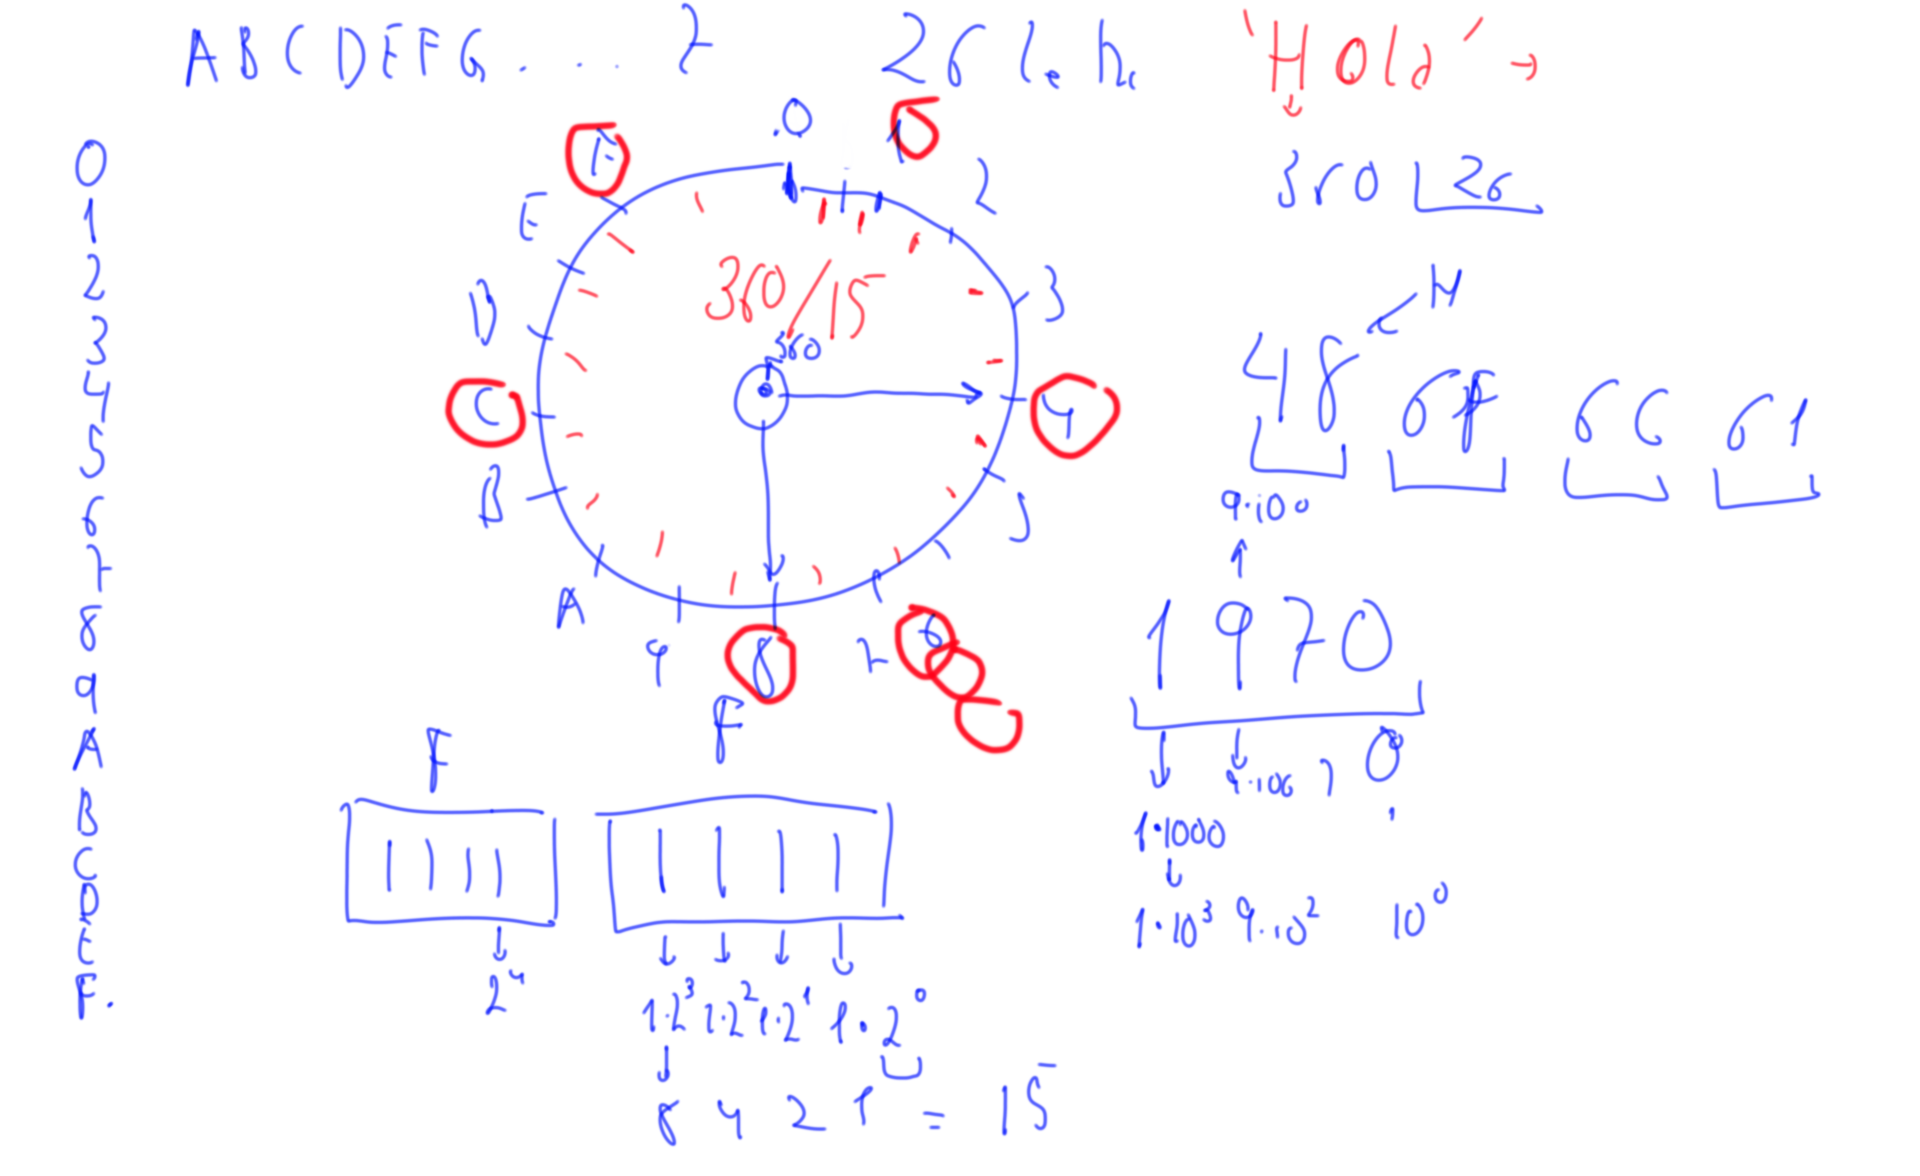 A B C D E F G . . . . Z
26 l.e.h.
'Hold' →
0
1
2
3
4
5
6
7
8
9
A
B
C
D
E
F.
.0
1
2
3
4
5
6
7
8
9
A
B
C
D
E
F
360/15
360
360 26
H
48 6F 6C 61
9·100
1970
1·1000
9·100 7 0
1·10³ 9·10² 10⁰
F
F
2⁴
1·2³ 1·2² 1·2¹ 1·2⁰
8 4 2 1 = 15